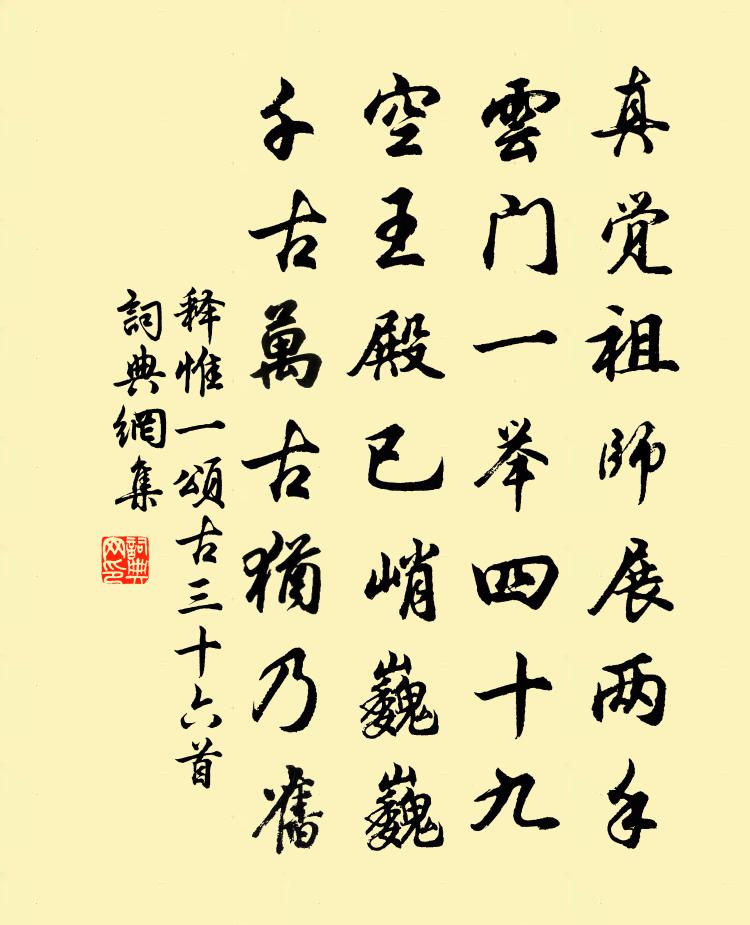 真觉祖師展两手
雲门一举四十九
空王殿已峭巍巍
千古萬古猶乃舊
释惟一頌古三十六首
詞典網集
詞典网印